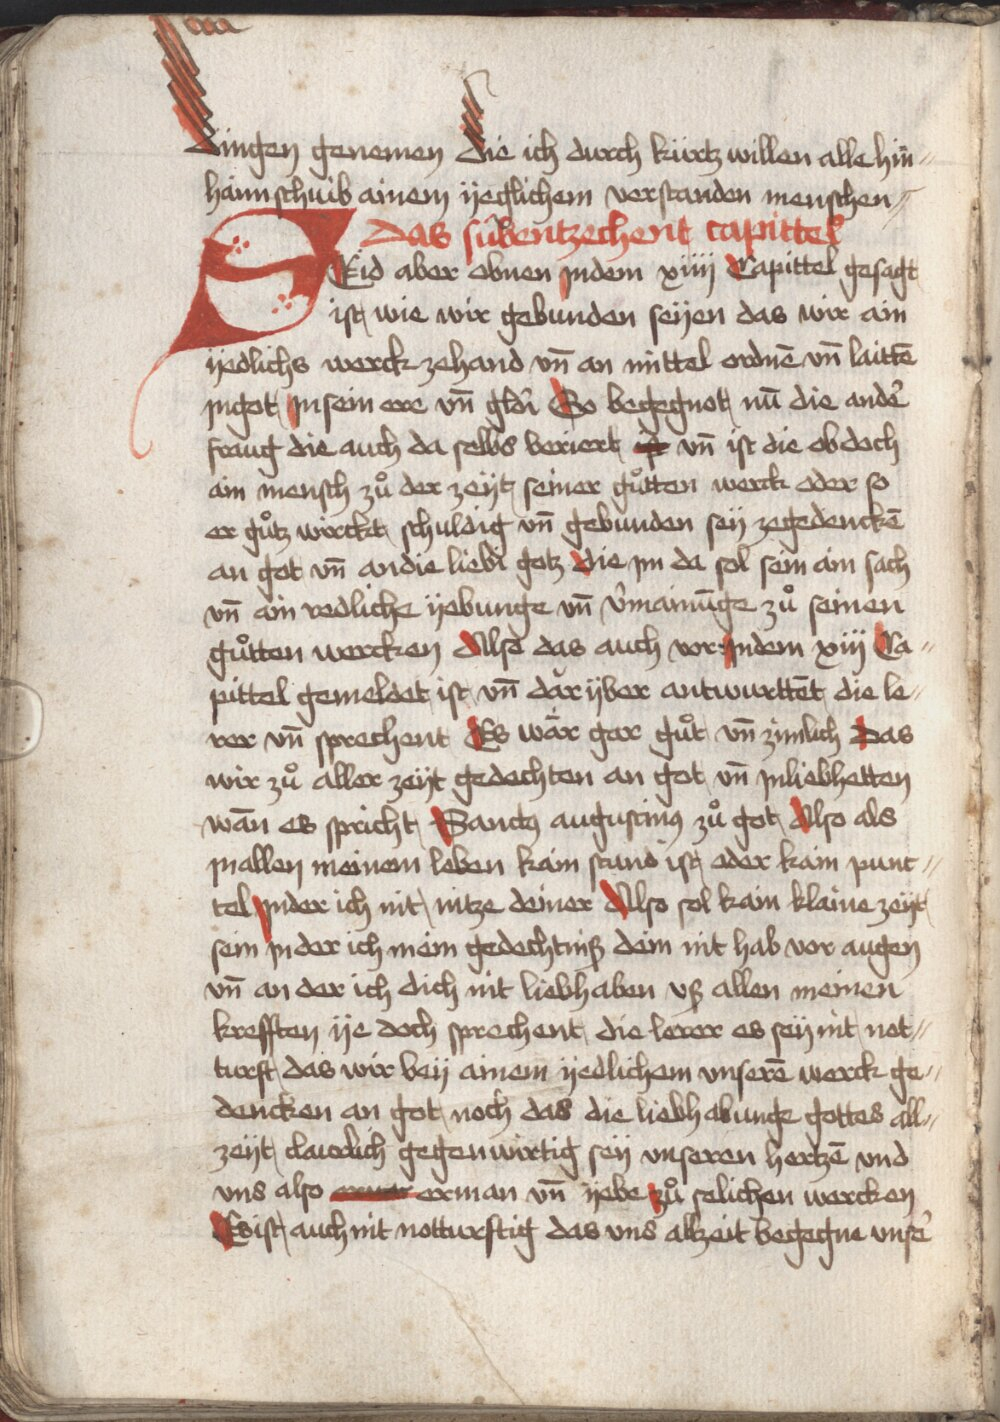 dingen genemen die ich durch kürtz willen alle hin̄ //
haim schuib ainem yeglichem verstanden menschen //
Das sübentzechent capittel
SEid aber obnen Jndem xiiij Capittel gesagt
ist wie wir gebunden seyen das wir ain
yedlichs werck zehand vn̄ an mittel ordnē vn̄ laittē
Jn got Jn sein ere vn̄ glori So begegnot nū die andeʳ
fraug die auch da selbs beriert vn̄ ist die ob doch
ain mensch zů der zeyt seiner gůtten werck oder so
er gůtz wirckt schuldig vn̄ gebunden sey zegedenckē
an got vn̄ an die liebi gotz die Jm da sol sein ain sach
vn̄ ain redliche yebunge vn̄ v̄manūge zů seinen
gůtten wercken Also das auch vor Jndem xiij Ca //
pittel gemeldet ist vn̄ dar yber antwurttēt die le //
rer vn̄ sprechent Es wär gar gůt vn̄ zimlich Das
wir zů aller zeyt gedechten an got vn̄ Jn liebhetten
wān es spricht Sanctꝰ augustinꝰ zů got Also als
Jn allen meinem leben kain stund ist oder kain punc //
tel Jnder ich nit nitze deiner Also sol kain klaine zeyt
sein Jn der ich mein gedechtniß dein nit hab vor augen
vn̄ an der ich dich nit liebhaben vß allen meinen
krefften ye doch sprechent die lerer es sey nit not //
turft das wir bey ainem yedlichem vnserē werck ge //
dencken an got noch das die liebhabunge gottes all //
zeyt clauerlich gegenwirtig sey vnseren hertzē vnd
vns also erman vn̄ yebe zů solichen wercken
Es ist auch nit notturftig das vns allzeit begegne vnseʳ